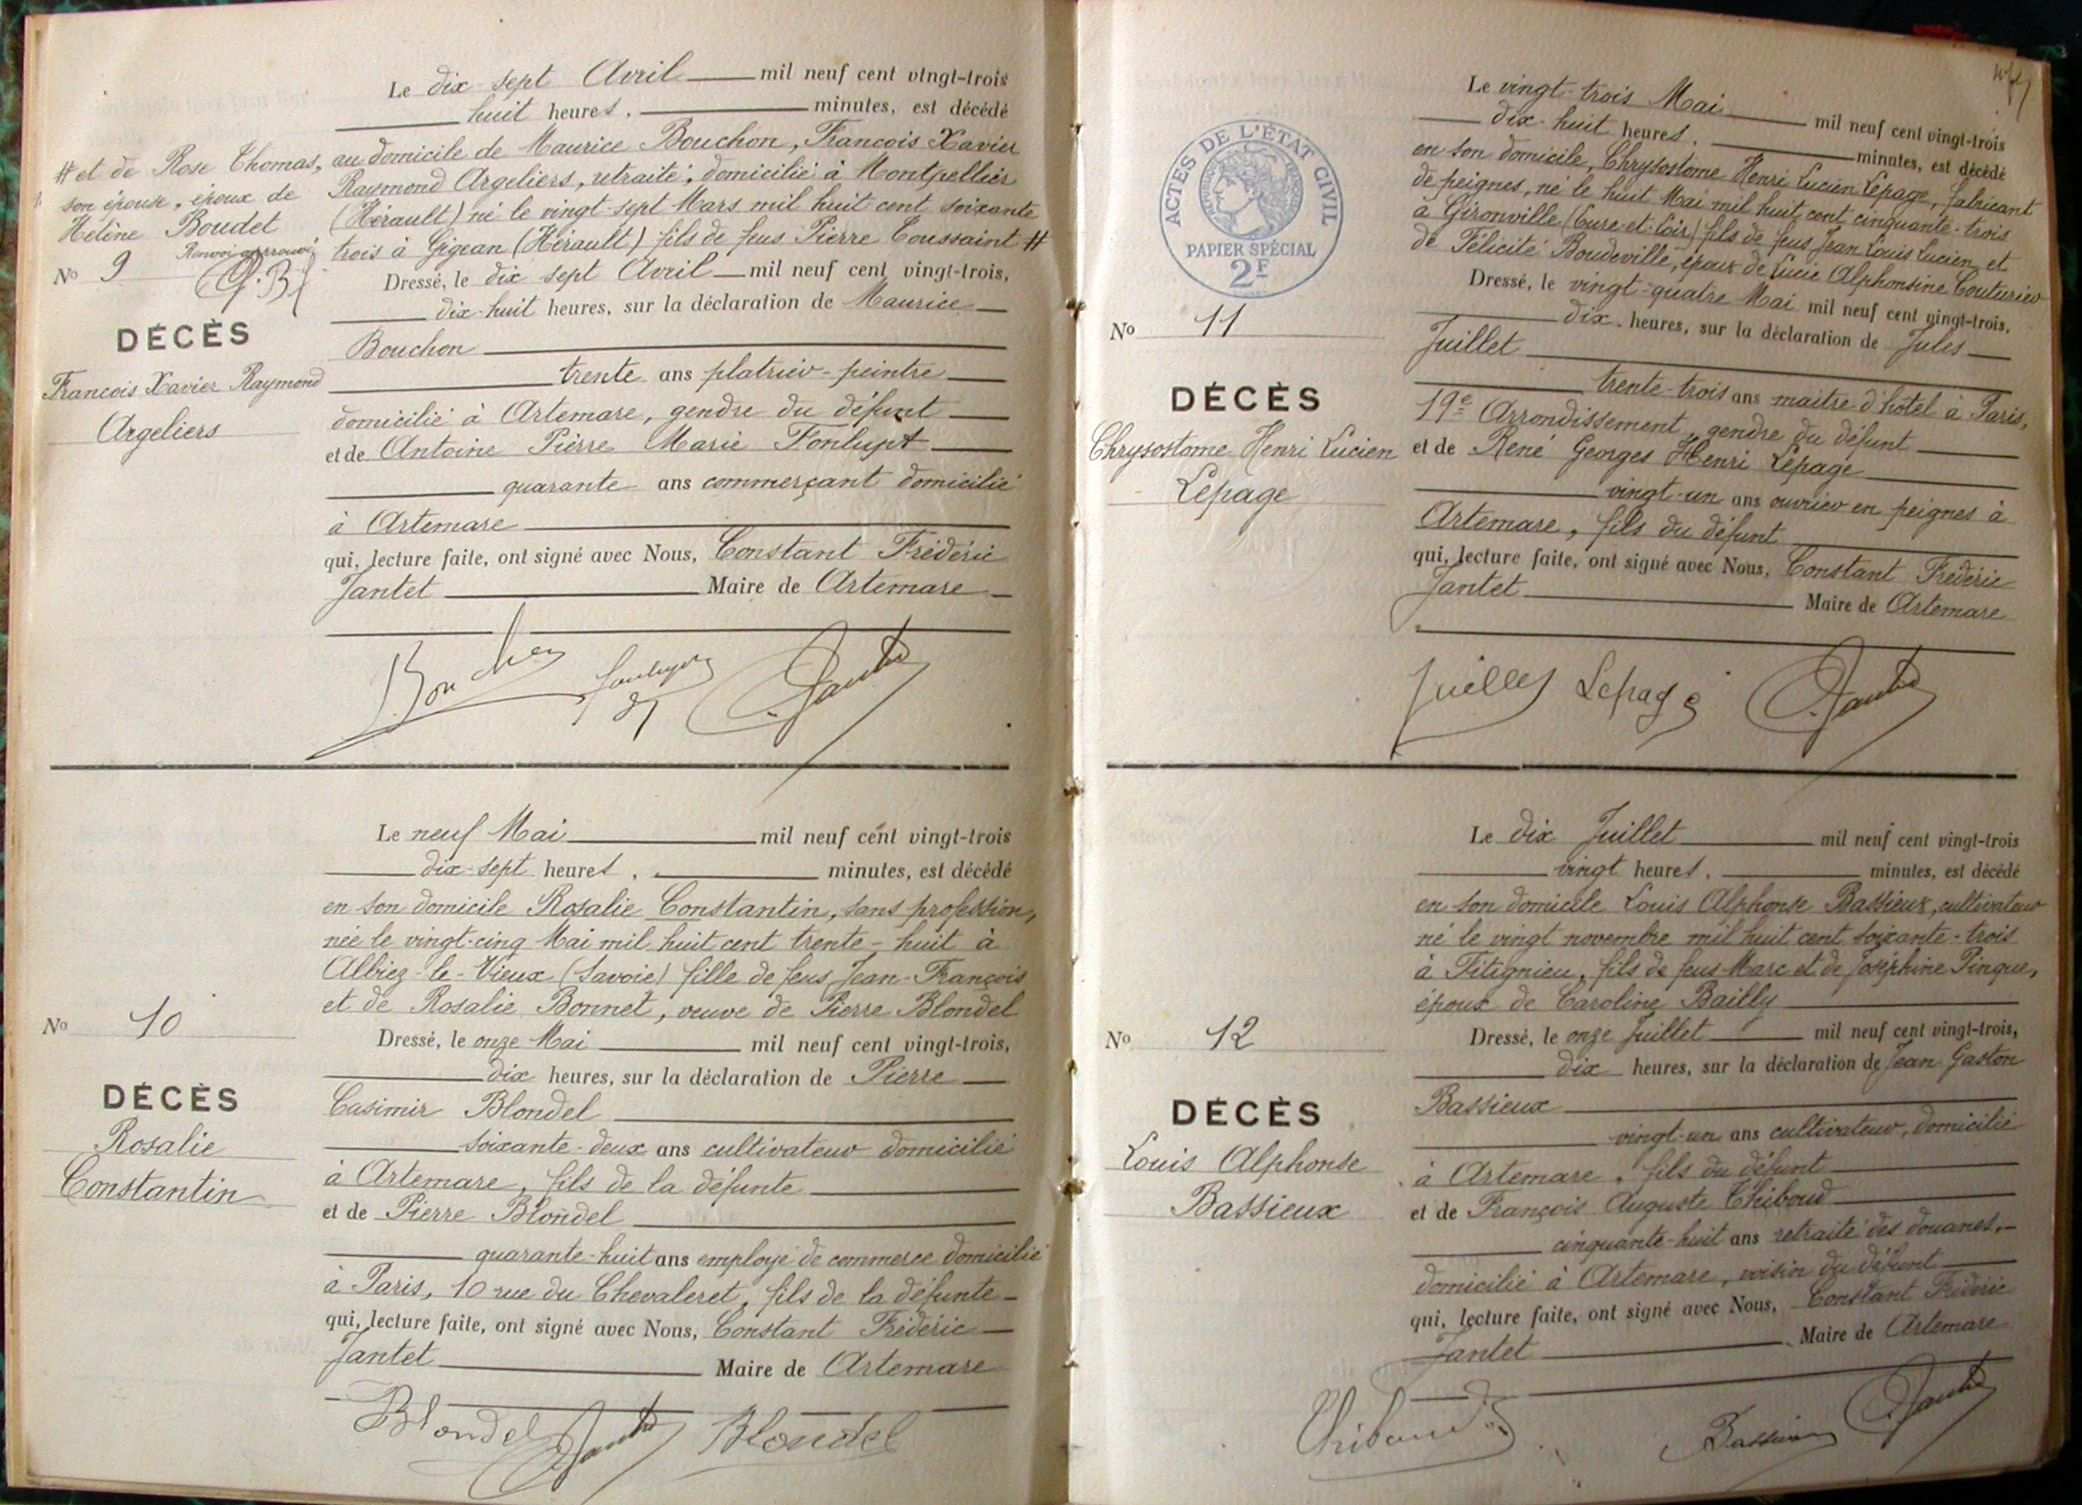 Le dix sept Avril mil neuf cent vingt-trois
huit heures, minutes, est décédé
au domicile de Maurice Bouchon, François Xavier
Raymond Argeliers, retraité, domicilié à Montpellier
(Hérault) né le vingt sept Mars mil huit cent soixante
trois à Gigean (Hérault) fils de feus Pierre Toussaint #
# et de Rose Thomas,
son épouse, époux de
Hélène Boudet
Renvoi approuvé
Nº 9
DÉCÈS
François Xavier Raymond
Argeliers
Dressé, le dix sept Avril mil neuf cent vingt-trois,
dix-huit heures, sur la déclaration de Maurice
Bouchon
trente ans platrier-peintre
domicilié à Artemare, gendre du défunt
et de Antoine Pierre Marie Fonlupt
quarante ans commerçant domicilié
à Artemare
qui, lecture faite, ont signé avec Nous, Constant Frédéric
Jantet Maire de Artemare
Bouchon Fonlupt Jantet
Le neuf Mai mil neuf cent vingt-trois
dix-sept heures, minutes, est décédé
en son domicile Rosalie Constantin, sans profession,
née le vingt-cinq Mai mil huit cent trente-huit à
Albiez-le-Vieux (Savoie) fille de feus Jean-François
et de Rosalie Bonnet, veuve de Pierre Blondel
Nº 10
DÉCÈS
Rosalie
Constantin
Dressé, le onze Mai mil neuf cent vingt-trois,
dix heures, sur la déclaration de Pierre
Casimir Blondel
soixante-deux ans cultivateur domicilié
à Artemare, fils de la défunte
et de Pierre Blondel
quarante-huit ans employé de commerce domicilié
à Paris, 10 rue du Chevaleret, fils de la défunte
qui, lecture faite, ont signé avec Nous, Constant Frédéric
Jantet Maire de Artemare
Blondel Jantet Blondel
ACTES DE L'ÉTAT CIVIL
PAPIER SPÉCIAL
2F
Le vingt-trois Mai mil neuf cent vingt-trois
dix-huit heures, minutes, est décédé
en son domicile, Chrysostome Henri Lucien Lepage, fabricant
de peignes, né le huit Mai mil huit cent cinquante-trois
à Gironville (Eure-et-Loir) fils de feus Jean Louis Lucien et
de Félicité Boudeville, époux de Lucie Alphonsine Couturier
Nº 11
DÉCÈS
Chrysostome Henri Lucien
Lepage
Dressé, le vingt-quatre Mai mil neuf cent vingt-trois,
dix heures, sur la déclaration de Jules
Juillet
trente-trois ans maître d'hôtel à Paris,
19e Arrondissement, gendre du défunt
et de René Georges Henri Lepage
vingt-un ans ouvrier en peignes à
Artemare, fils du défunt
qui, lecture faite, ont signé avec Nous, Constant Frédéric
Jantet Maire de Artemare
Juillet Lepage Jantet
Le dix Juillet mil neuf cent vingt-trois
vingt heures, minutes, est décédé
en son domicile Louis Alphonse Bassieux, cultivateur
né le vingt novembre mil huit cent soixante-trois
à Fitignieu, fils de feus Marc et de Joséphine Pingue,
époux de Caroline Bailly
Nº 12
DÉCÈS
Louis Alphonse
Bassieux
Dressé, le onze Juillet mil neuf cent vingt-trois,
dix heures, sur la déclaration de Jean Gaston
Bassieux
vingt-un ans cultivateur, domicilié
à Artemare, fils du défunt
et de François Auguste Thiboud
cinquante-huit ans retraité des douanes,
domicilié à Artemare, voisin du défunt
qui, lecture faite, ont signé avec Nous, Constant Frédéric
Jantet Maire de Artemare
Bassieux Jantet